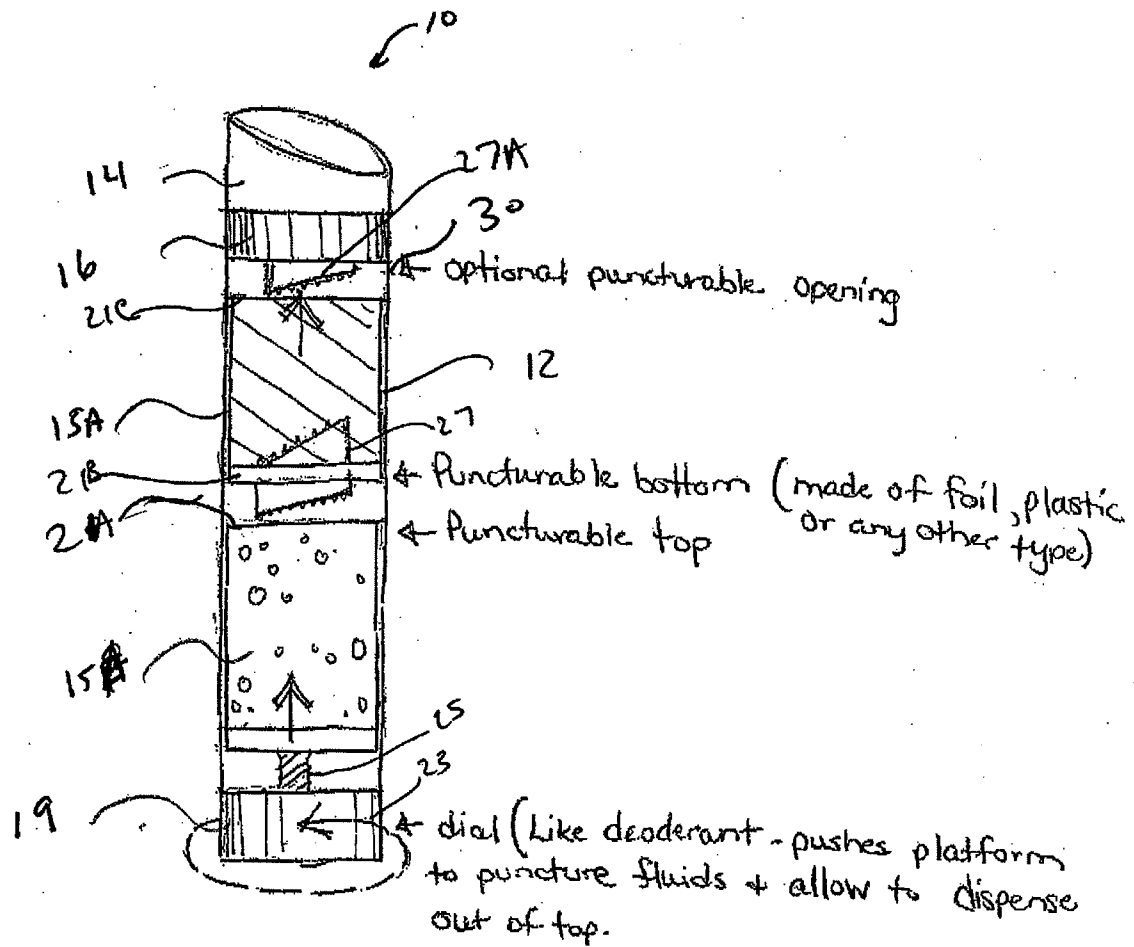 10
27A
14
30
16
optional puncturable opening
21C
12
15A
27
21B
Puncturable bottom (made of foil, plastic
or any other type)
21A
Puncturable top
15
25
23
19
dial (Like deoderant - pushes platform
to puncture fluids + allow to dispense
out of top.